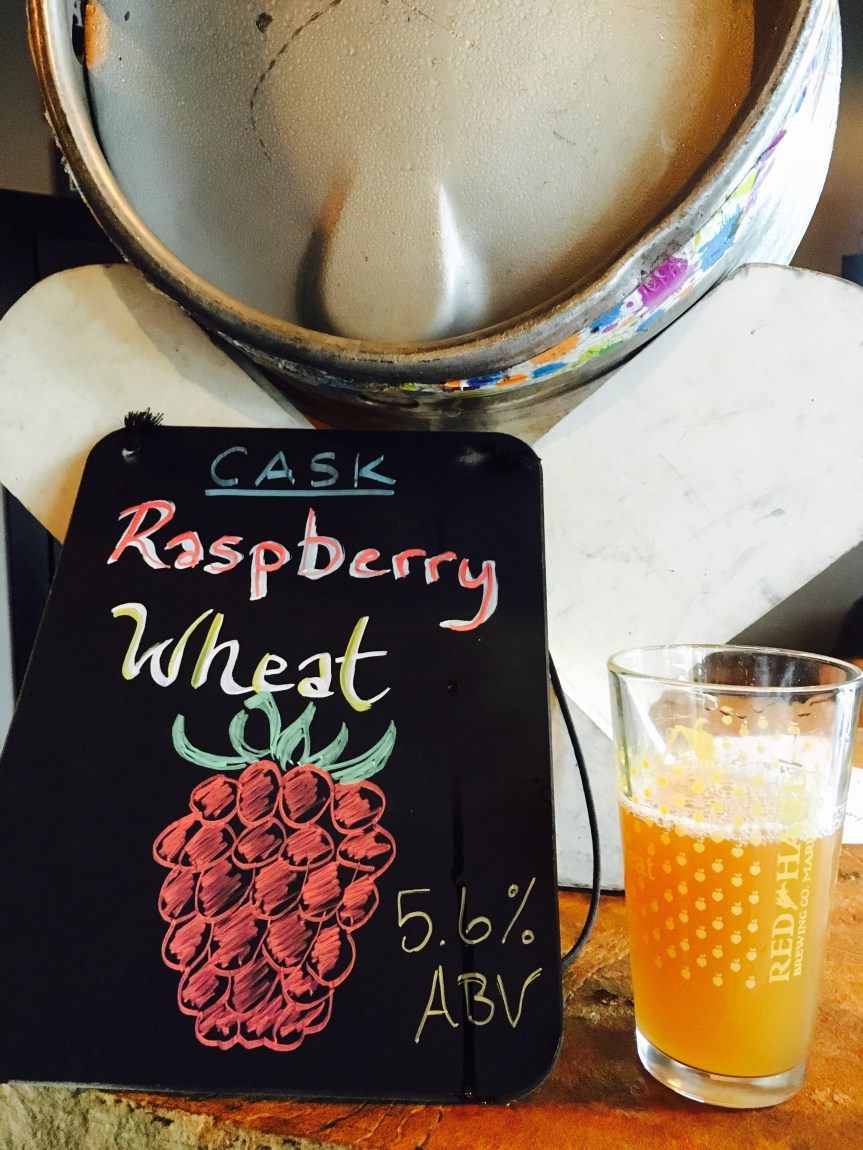 CASK
Raspberry
Wheat
5.6%
ABV
RED HARE
BREWING CO. MAR